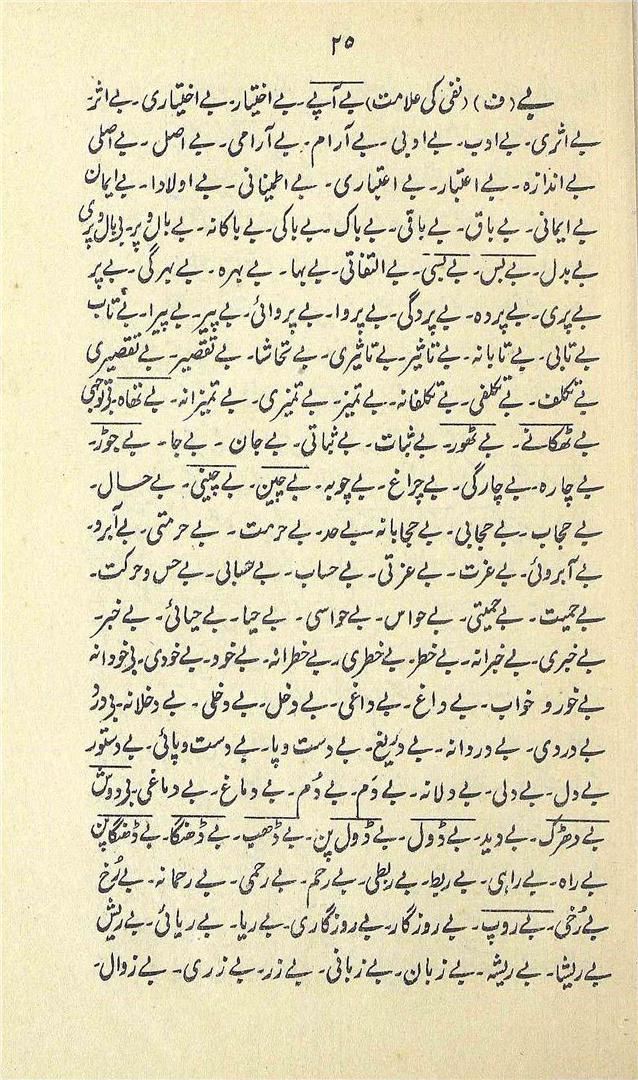 ۲۵
بے (ف) (نفی کی علامت) بے آپے۔ بے اختیار۔ بے اختیاری۔ بے اثر۔
بے اثری۔ بے ادب۔ بے ادبی۔ بے آرام۔ بے آرامی۔ بے اصل۔ بے اصلی
بے اندازہ۔ بے اعتبار۔ بے اعتباری۔ بے اطمینانی۔ بے اولادا۔ بے ایمان
بے ایمانی۔ بے باق۔ بے باقی۔ بے باک۔ بے باکی۔ بے باکانہ۔ بے بال و پر۔ بے بال و پری
بے بدل۔ بے بس۔ بے بسی۔ بے التفاتی۔ بے بہا۔ بے بہرہ۔ بے بہرگی۔ بے پر
بے پری۔ بے پردہ۔ بے پردگی۔ بے پروا۔ بے پروائی۔ بے پیر۔ بے پیرا۔ بے تاب
بے تابی۔ بے تابانہ۔ بے تاثیر۔ بے تاثیری۔ بے تحاشا۔ بے تقصیر۔ بے تقصیری
بے تکلف۔ بے تکلفی۔ بے تکلفانہ۔ بے تمیز۔ بے تمیزی۔ بے تمیزانہ۔ بے تھاہ۔ بے توجہی
بے ٹھکانے۔ بے ٹھور۔ بے ثبات۔ بے ثباتی۔ بے جان۔ بے جا۔ بے جوڑ۔
بے چارہ۔ بے چارگی۔ بے چراغ۔ بے چوبہ۔ بے چین۔ بے چینی۔ بے حال۔
بے حجاب۔ بے حجابی۔ بے حجابانہ۔ بے حد۔ بے حرمت۔ بے حرمتی۔ بے آبرو۔
بے آبروئی۔ بے عزت۔ بے عزتی۔ بے حساب۔ بے حسابی۔ بے حس و حرکت۔
بے حمیت۔ بے حمیتی۔ بے حواس۔ بے حواسی۔ بے حیا۔ بے حیائی۔ بے خبر۔
بے خبری۔ بے خبرانہ۔ بے خطر۔ بے خطری۔ بے خطرانہ۔ بے خود۔ بے خودی۔ بے خودانہ
بے خور و خواب۔ بے داغ۔ بے داغی۔ بے دخل۔ بے دخلی۔ بے دخلانہ۔ بے درد
بے دردی۔ بے دردانہ۔ بے دریغ۔ بے دست و پا۔ بے دست و پائی۔ بے دستور
بے دل۔ بے دلی۔ بے دلانہ۔ بے دَم۔ بے دُم۔ بے دماغ۔ بے دماغی۔ بے دوش
بے دھڑک۔ بے دید۔ بے ڈول۔ بے ڈول پن۔ بے ڈھب۔ بے ڈھنگا۔ بے ڈھنگا پن
بے راہ۔ بے راہی۔ بے ربط۔ بے ربطی۔ بے رحم۔ بے رحمی۔ بے رحمانہ۔ بے رُخ
بے رُخی۔ بے روپ۔ بے روزگار۔ بے روزگاری۔ بے ریا۔ بے ریائی۔ بے ریش
بے ریشا۔ بے ریشہ۔ بے زبان۔ بے زبانی۔ بے زر۔ بے زری۔ بے زوال۔